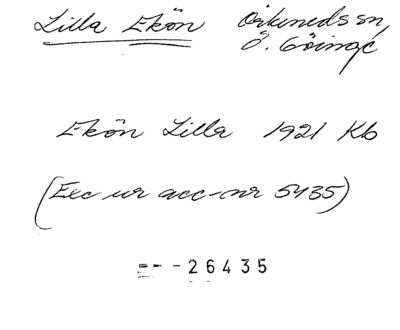 Lilla Ekön Oikeneds sn,
Ö. Göinge
Ekön Lilla 1921 Kb
(Exc ur acc-nr 5435)
26435